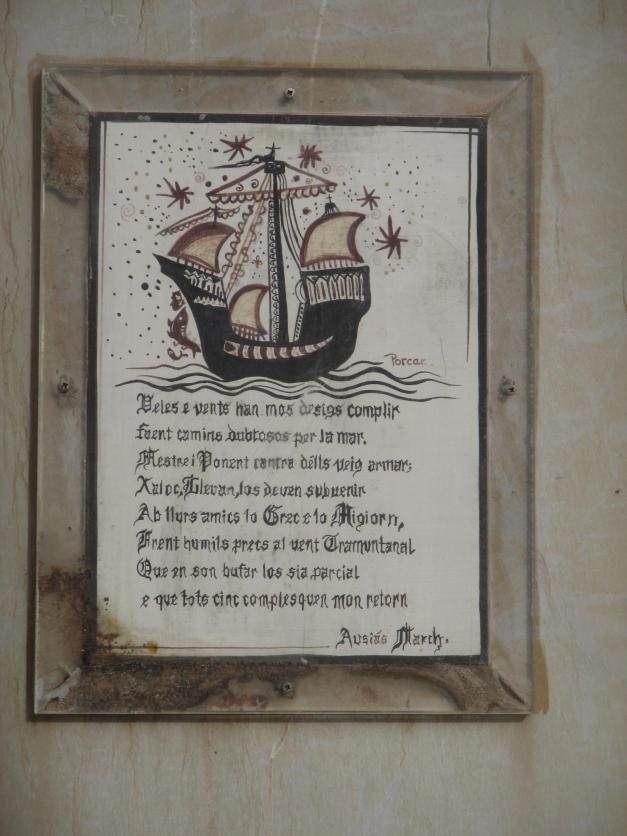 Porcar.
Veles e vents han mos desigs complir
faent camins dubtosos per la mar.
Mestre i Ponent contra d'ells veig armar;
Xaloc, Llevan, los deven subvenir
Ab llurs amics lo Grec e lo Migjorn,
Frent humils precs al vent Tramuntanal
Que en son bufar los sia parcial
e que tots cinc complesquen mon retorn
Ausiàs March.